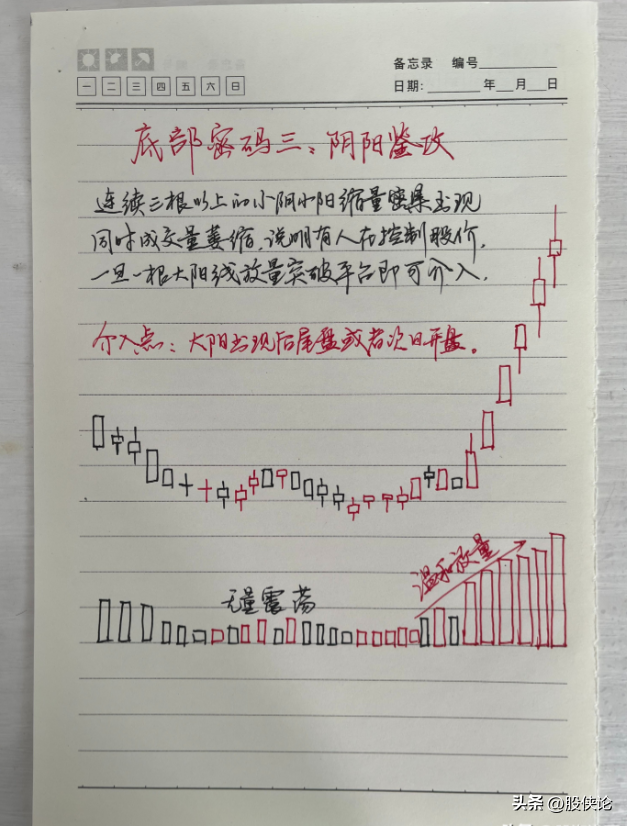 备忘录 编号
一 二 三 四 五 六 日
日期: 年 月 日
底部密码三:阴阳鉴攻
连续三根以上的小阴小阳缩量实体出现
同时成交量萎缩,说明有人在控制股价,
一旦一根大阳线放量突破平台即可介入.
介入点:大阳出现后尾盘或者次日开盘.
无量震荡
温和放量
头条 @股侠论